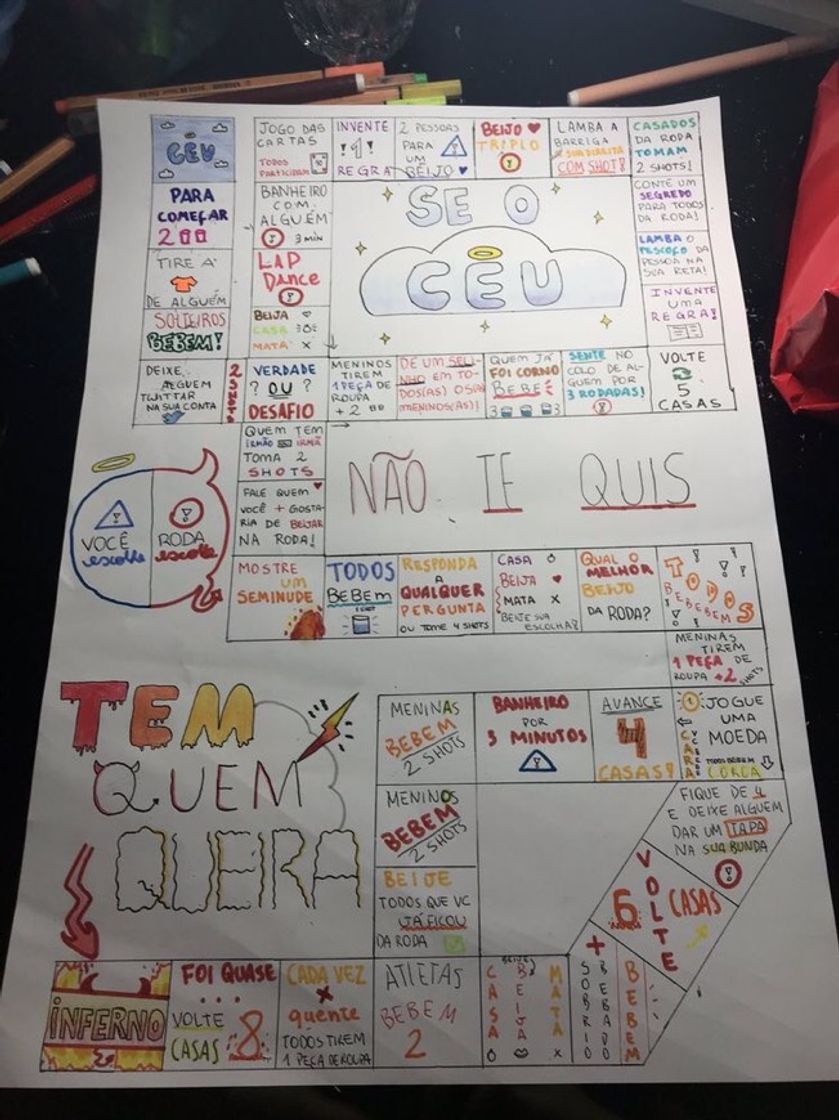 CÉU
PARA
COMEÇAR
2
TIRE A
DE ALGUÉM
SOLTEIROS
BEBEM!
DEIXE
ALGUEM
TWITTAR
NA SUA CONTA
2 SHOTS
JOGO DAS
CARTAS
TODOS
PARTICIPAM
INVENTE
!1!
REGRA
2 PESSOAS
PARA
UM
BEIJO
BEIJO
TRIPLO
LAMBA A
BARRIGA
A SUA DIREITA
COM SHOT!
CASADOS
DA RODA
TOMAM
2 SHOTS!
CONTE UM
SEGREDO
PARA TODOS
DA RODA!
LAMBA O
PESCOÇO DA
PESSOA NA
SUA RETA!
INVENTE
UMA
REGRA!
VOLTE
5
CASAS
SENTE NO
COLO DE AL-
GUEM POR
3 RODADAS!
QUEM JÁ
FOI CORNO
BEBE
3 3
DE UM SELI-
NHO EM TO-
DOS(AS) OS(AS)
MENINOS(AS)!
MENINOS
TIREM
1 PEÇA DE
ROUPA
+ 2
BANHEIRO
COM
ALGUÉM
3 min
LAP
DANCE
BEIJA
CASA
MATA X
VERDADE
? OU ?
DESAFIO
SE O
CÉU
NÃO TE QUIS
QUEM TEM
IRMÃO OU IRMÃ
TOMA 2
SHOTS
FALE QUEM
VOCÊ + GOSTA-
RIA DE BEIJAR
NA RODA!
VOCÊ
escolhe
RODA
escolhe
MOSTRE
UM
SEMINUDE
TODOS
BEBEM
1 SHOT
RESPONDA
A
QUALQUER
PERGUNTA
OU TOME 4 SHOTS
CASA
BEIJA
MATA X
BEIJE SUA
ESCOLHA!
QUAL O
MELHOR
BEIJO
DA RODA?
TODOS
BEBEM
MENINAS
TIREM
1 PEÇA DE
ROUPA +2
SHOTS
JOGUE
UMA
MOEDA
CARA
TODOS BEBEM
COROA
AVANCE
4
CASAS!
BANHEIRO
POR
3 MINUTOS
MENINAS
BEBEM
2 SHOTS
MENINOS
BEBEM
2 SHOTS
BEIJE
TODOS QUE VC
JÁ FICOU
DA RODA
FIQUE DE 4
E DEIXE ALGUEM
DAR UM TAPA
NA SUA BUNDA
VOLTE
6 CASAS
TEM
QUEM
QUEIRA
INFERNO
FOI QUASE
...
VOLTE
8
CASAS
CADA VEZ
+
quente
TODOS TIREM
1 PEÇA DE ROUPA
ATLETAS
BEBEM
2
CASA
BEIJA
MATA
X
+
SOBRIO
BEBADO
BEBEM